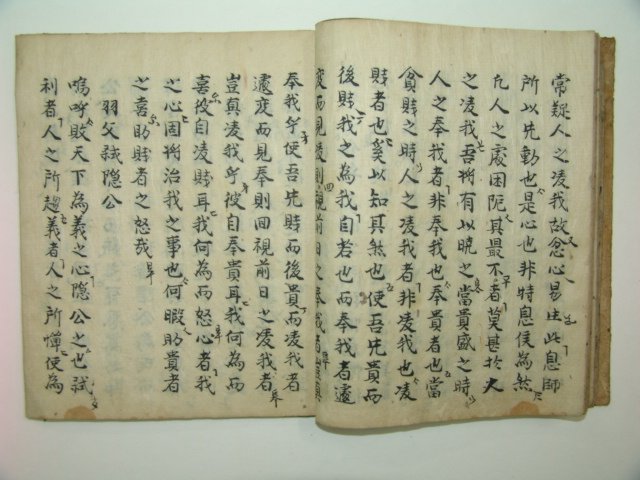 常疑人之凌我故忿心易生此息師
所以先動也是心也非特息侯為然
凡人之處困阨其最不平者莫甚於人
之凌我吾將有以曉之當貴盛之時
人之奉我者非奉我也奉貴者也當
貧賤之時人之凌我者非凌我也凌
賤者也奚以知其然也使吾先貴而
後賤我之為我自若也而奉我者遽
變而見凌則回視前日之奉我者豈真
奉我乎使吾先賤而後貴而凌我者
遽變而見奉則回視前日之凌我者
豈真凌我乎彼自奉貴耳我何為而
喜彼自凌賤耳我何為而怒心者我
之心固將治我之事也何暇助貴者
之喜助賤者之怒哉
公羽父弑隱公
嗚呼敗天下為義之心隱公之也弑
利者人之所趨義者人之所憚使為